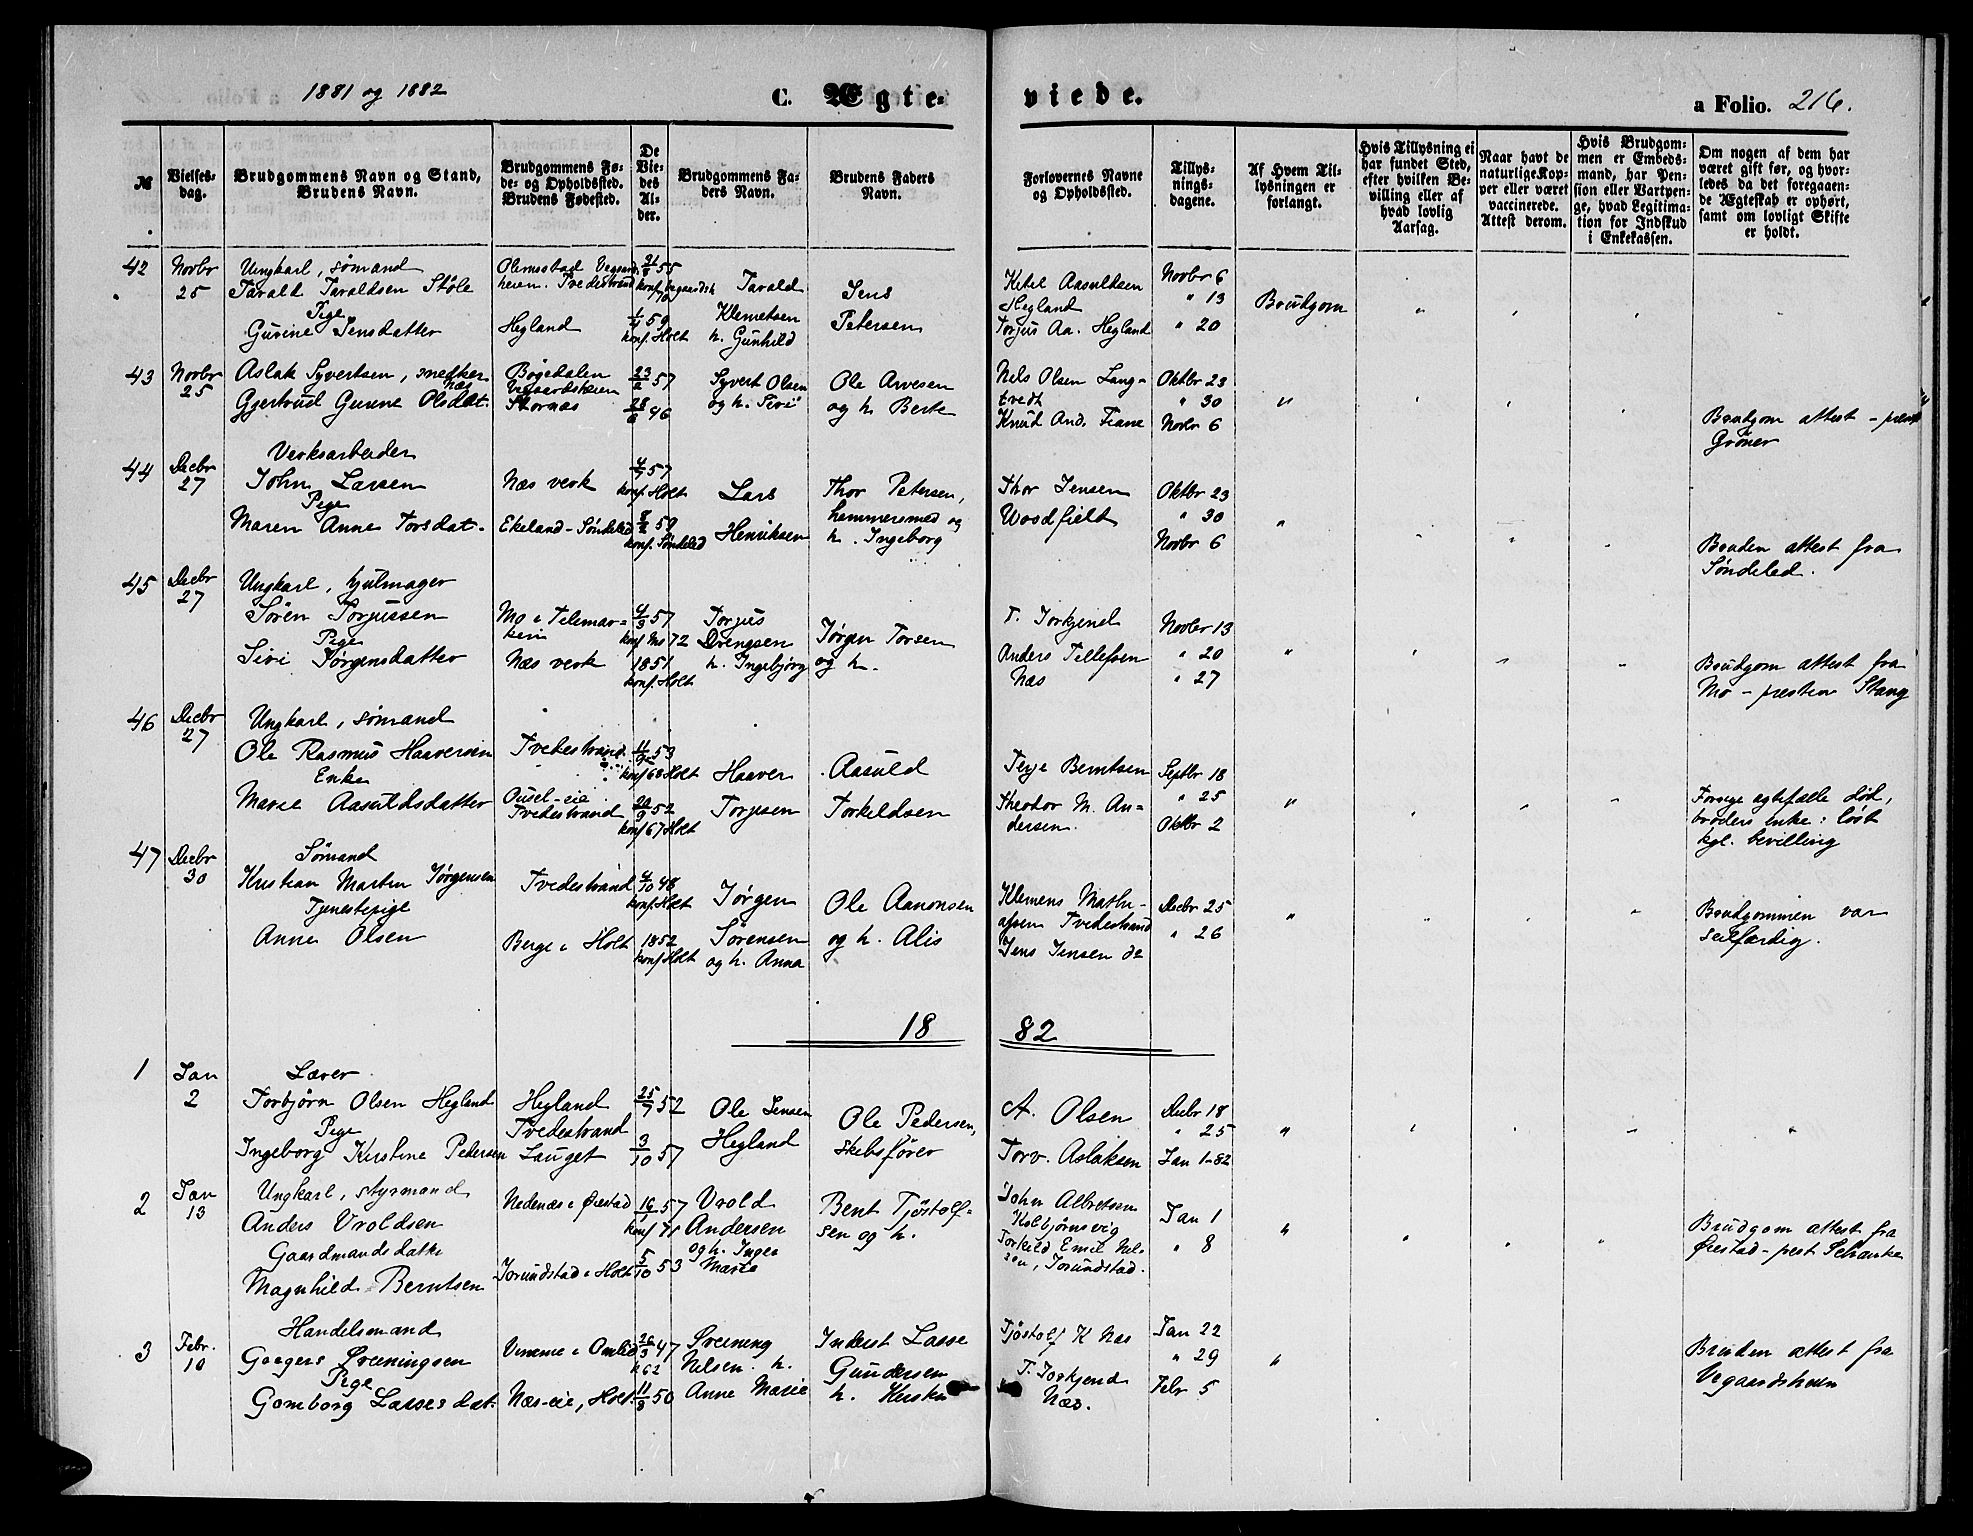 1881 og 1882
C. Ægte- viede.
a Folio. 216.
№
Vielses-
dag.
Brudgommens Navn og Stand,
Brudens Navn.
Brudgommens Fø-
de- og Opholdssted.
Brudens Fødested.
De
Vie-
des
Al-
der.
Brudgommens Fa-
ders Navn.
Brudens Faders
Navn.
Forlovernes Navne
og Opholdssted.
Tillys-
nings-
dagene.
Af Hvem Til-
lysningen er
forlangt.
Hvis Tillysning ei
har fundet Sted,
efter hvilken Be-
villing eller af
hvad lovlig
Aarsag.
Naar havt de
naturlige Kop-
per eller været
vaccinerede.
Attest derom.
Hvis Brudgom-
men er Embeds-
mand, har Pen-
sion eller Vartpen-
ge, hvad Legitima-
tion for Indskud
i Enkekassen.
Om nogen af dem har
været gift før, og hvor-
ledes da det foregaaen-
de Ægteskab er ophørt,
samt om lovligt Skifte
er holdt.
42
Novbr
25
Ungkarl, sømand
Tarald Taraldsen Støle
Pige
Gurine Jensdatter
Olemsstad Vegaards-
heien. Tvedestrand
Hegland
21/9 55
1/4 59
konf. Holt
Tarald
Klemetsen
h. Gunhild
Jens
Petersen
Ketil Aasuldsen
Hegland
Torjus Aa. Hegland
Novbr 6
" 13
" 20
Brudgom
43
Novbr
25
Aslak Syvertsen, snedker
Næs
Gjertrud Gurine Olsdat.
Bøgedalen
Vegaardsheien
Stornæs
23/2 57
28/2 46
Syvert Olsen
og h. Siri
Ole Arvesen
og h. Berte
Nels Olsen Lang-
tvedt
Knud And. Fiane
Oktbr 23
" 30
Novbr 6
"
Brudgom attest - prest
Grøner
44
Decbr
27
Verksarbeider
John Larsen
Pige
Maren Anne Torsdat.
Næs verk
Ekeland - Søndeled
4/7 57
konf. Holt
8/2 59
konf. Søndeled
Lars
Henriksen
Thor Petersen,
hammersmed og
h. Ingeborg
Thor Jensen
Woodfield
Oktbr 23
" 30
Novbr 6
"
Bruden attest fra
Søndeled.
45
Decbr
27
Ungkarl, hjulmager
Søren Torjussen
Pige
Siri Jørgensdatter
Mo i Telemar-
ken
Næs verk
4/3 57
konf Mo 72
1851
konf. Holt
Torjus
Drengsen
h. Ingebjørg
Jørgen Torsen
og h.
T. Torkjend
Anders Tellefsen
Næs
Novbr 13
" 20
" 27
"
Brudgom attest fra
Mo - presten Stang
46
Decbr
27
Ungkarl, sømand
Ole Rasmus Haaversen
Enke
Marie Aasuldsdatter
Tvedestrand
Ousel-eie
Tvedestrand
11/9 53
konf 68 Holt
20/9 52
konf 67 Holt
Haaver
Torjesen
Aasuld
Torkildsen
Terje Berntsen
Theodor M. An-
dersen.
Septbr 18
" 25
Oktbr 2
"
Forrige ægtefælle død,
broders enke: løst
kgl. bevilling
47
Decbr
30
Sømand
Kristian Martin Jørgensen
Tjenestepige
Anne Olsen
Tvedestrand
Berge i Holt
4/10 48
konf. Holt
1852
konf Holt
Jørgen
Sørensen
og h. Anna
Ole Aanonsen
og h. Alis
Klemens Mathi-
assen Tvedestrand
Jens Jensen do
Decbr 25
" 26
"
Brudgommen var
seilfærdig.
18 82
1
Jan
2
Lærer
Torbjørn Olsen Hegland
Pige
Ingeborg Kirstine Pedersen
Hegland
Tvedestrand
Lauget
25/7 52
3/10 57
Ole Jensen
Hegland
Ole Pedersen,
skibsfører
A. Olsen
Torv. Aslaksen
Decbr 18
" 25
Jan 1-82
"
2
Jan
13
Ungkarl, styrmand
Anders Vroldsen
Gaardmandsdatter
Magnhild Berntsen
Nedenæs i Øiestad
Jorundstad i Holt
16/1 57
konf 71
5/10 53
Vrold
Andersen
og h. Inger
Marie
Bent Tjøstolf-
sen og h.
John Albretsen
Kolbjørnsvig
Torkild Emil Nel-
sen, Jorundstad.
Jan 1
" 8
"
Brudgom attest fra
Øiestad - prest Schanke
3
Febr.
10
Handelsmand
Goegers Sveiningsen
Pige
Gomborg Lassesdat.
Vimme i Omlid
Næs-eie, Holt.
26/3 47
k 62
11/3 50
Sveining
Nelsen. h.
Anne Marie
Inderst Lasse
Gundersen
h. Kirsten
Tjøstolf K Næs
T. Torkjend
Næs.
Jan 22
" 29
Febr 5
"
Bruden attest fra
Vegaardsheien